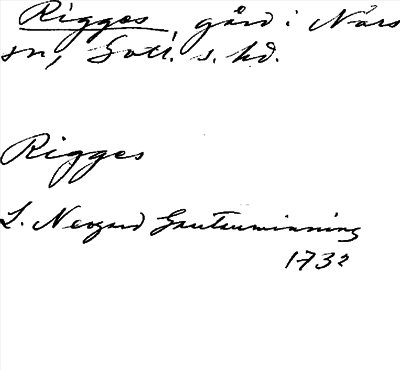 Rigges, gård i Närs
sn, Gotl. s. hd.
Rigges
L. Neogard Gautauminning
1732